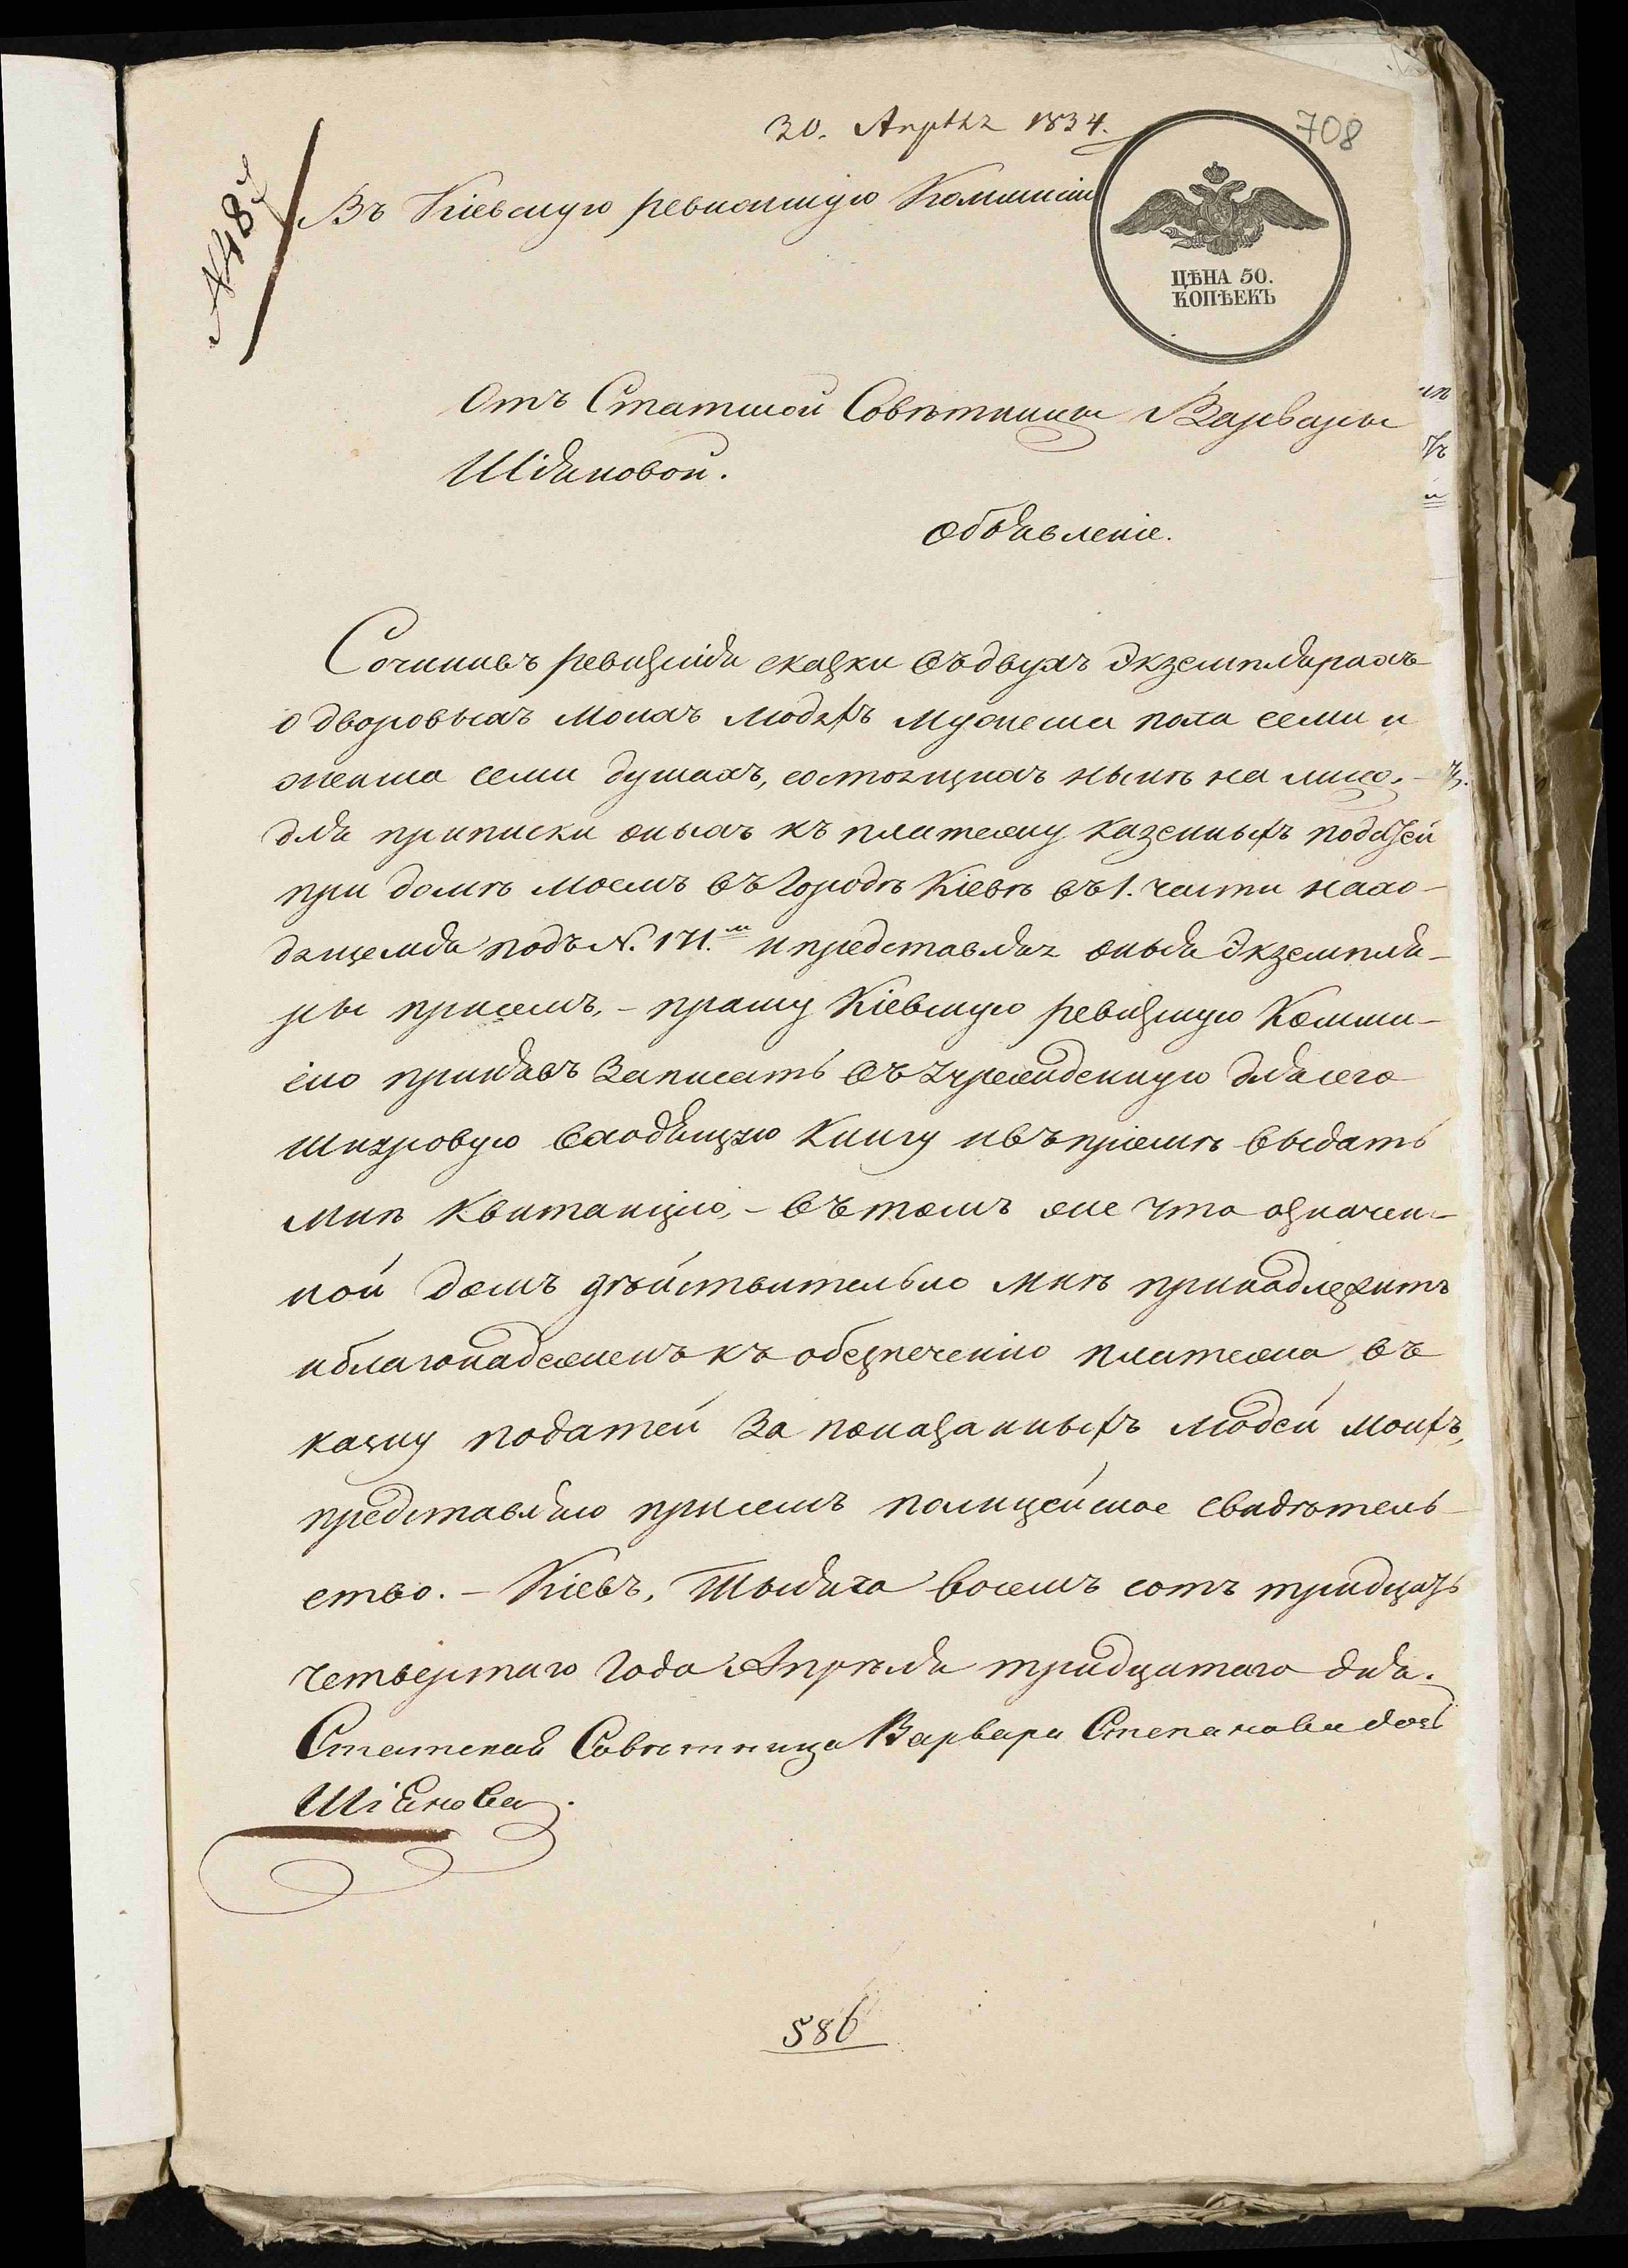 30. Апрѣля 1834.
708
№ 487
Въ Кіевскую ревизскую Коммисію
ЦѢНА 50.
КОПѢЕКЪ
Отъ Статской Совѣтницы Варвары
Шіяновой.
Объявленіе.
Сочинивъ ревизскія сказки въ двухъ Экземплярахъ
о дворовыхъ моихъ людяхъ мужеска пола семи и
женска семи душахъ, состоящихъ нынѣ на лицо, –
для приписки оныхъ къ платежу казенныхъ податей
при домѣ моемъ въ Городѣ Кіевѣ въ 1. части нахо-
дящемся подъ N. 171.м и представляя оныя Экземпля-
ры присемъ, – прошу Кіевскую ревизскую Комми-
сію принявъ Записать въ Учрежденную для сего
шнуровую входящую Книгу и въ пріемѣ выдать
мнѣ Квитанцію, – въ томъ же что означен-
ной домъ дѣйствительно мнѣ принадлежитъ
и благонадеженъ къ обезпеченію платежа въ
казну податей За показанныхъ людей моихъ,
представляю присемъ полицейское свидѣтель-
ство. – Кіевъ, Тысяча восемъ сотъ тридцать
четвертаго Года Апрѣля тридцатаго дня.
Статская Совѣтница Варвара Степанова дочь
Шіянова.
586